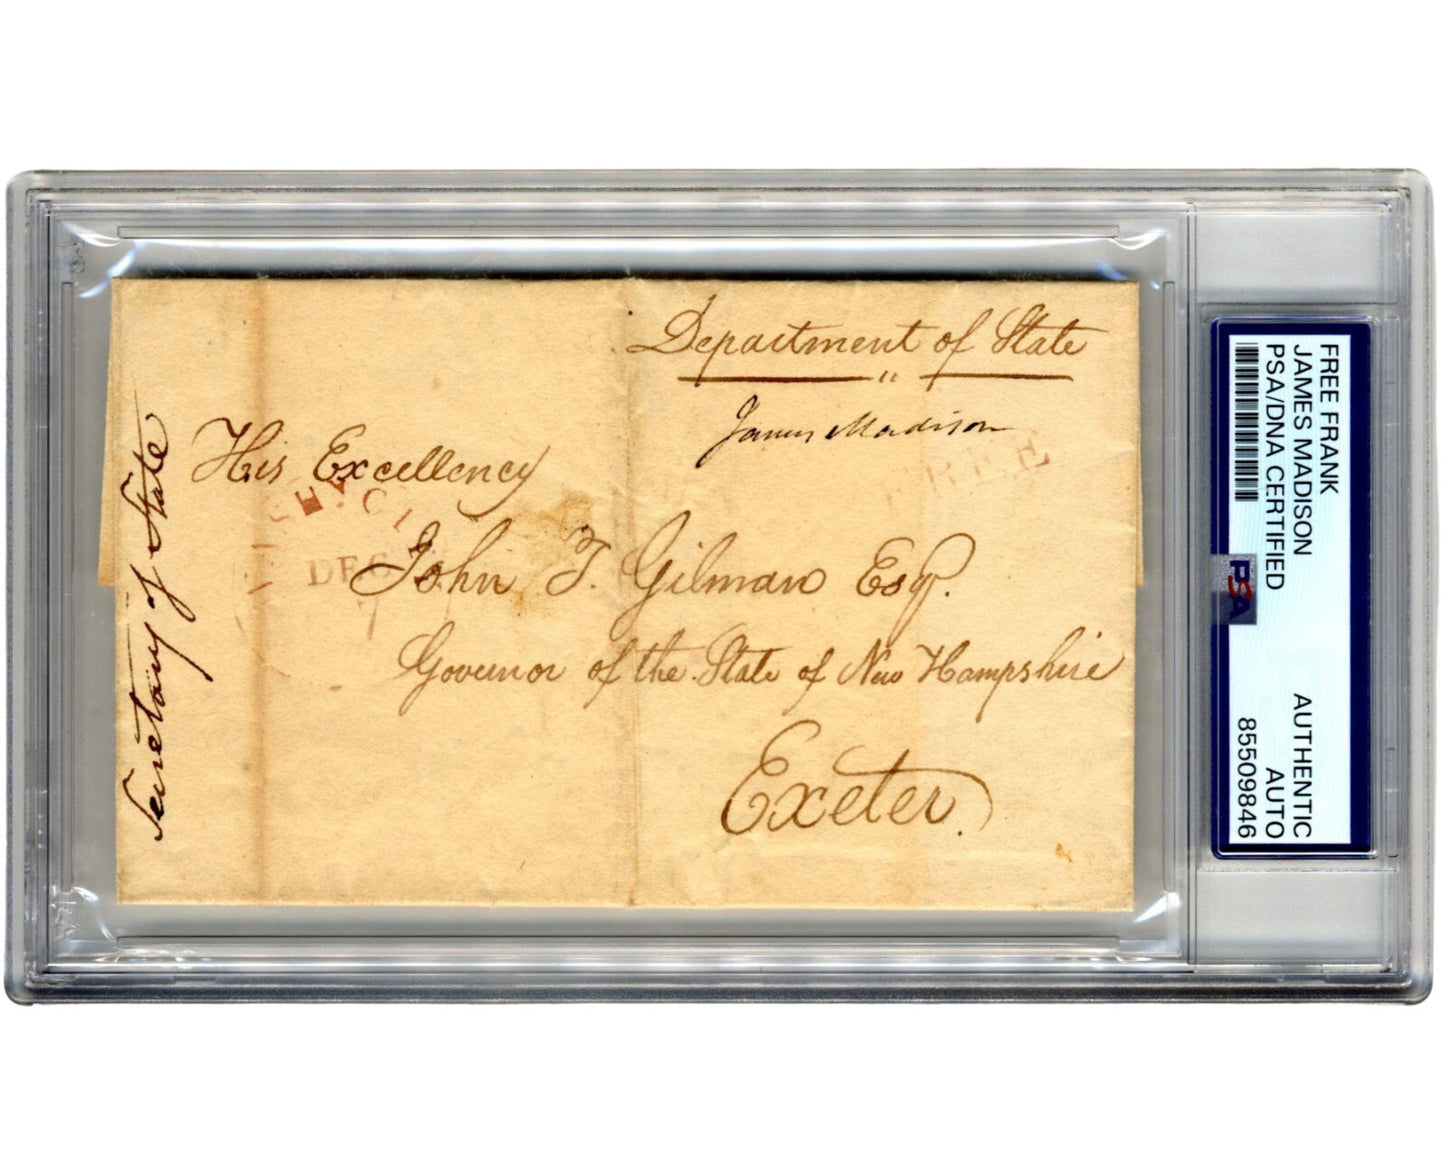 Department of State
James Madison
FREE
His Excellency
DEC
7
John T. Gilman Esqr.
Governor of the State of New Hampshire
Exeter.
Secretary of State
FREE FRANK
JAMES MADISON
PSA/DNA CERTIFIED
PSA
AUTHENTIC
AUTO
85509846